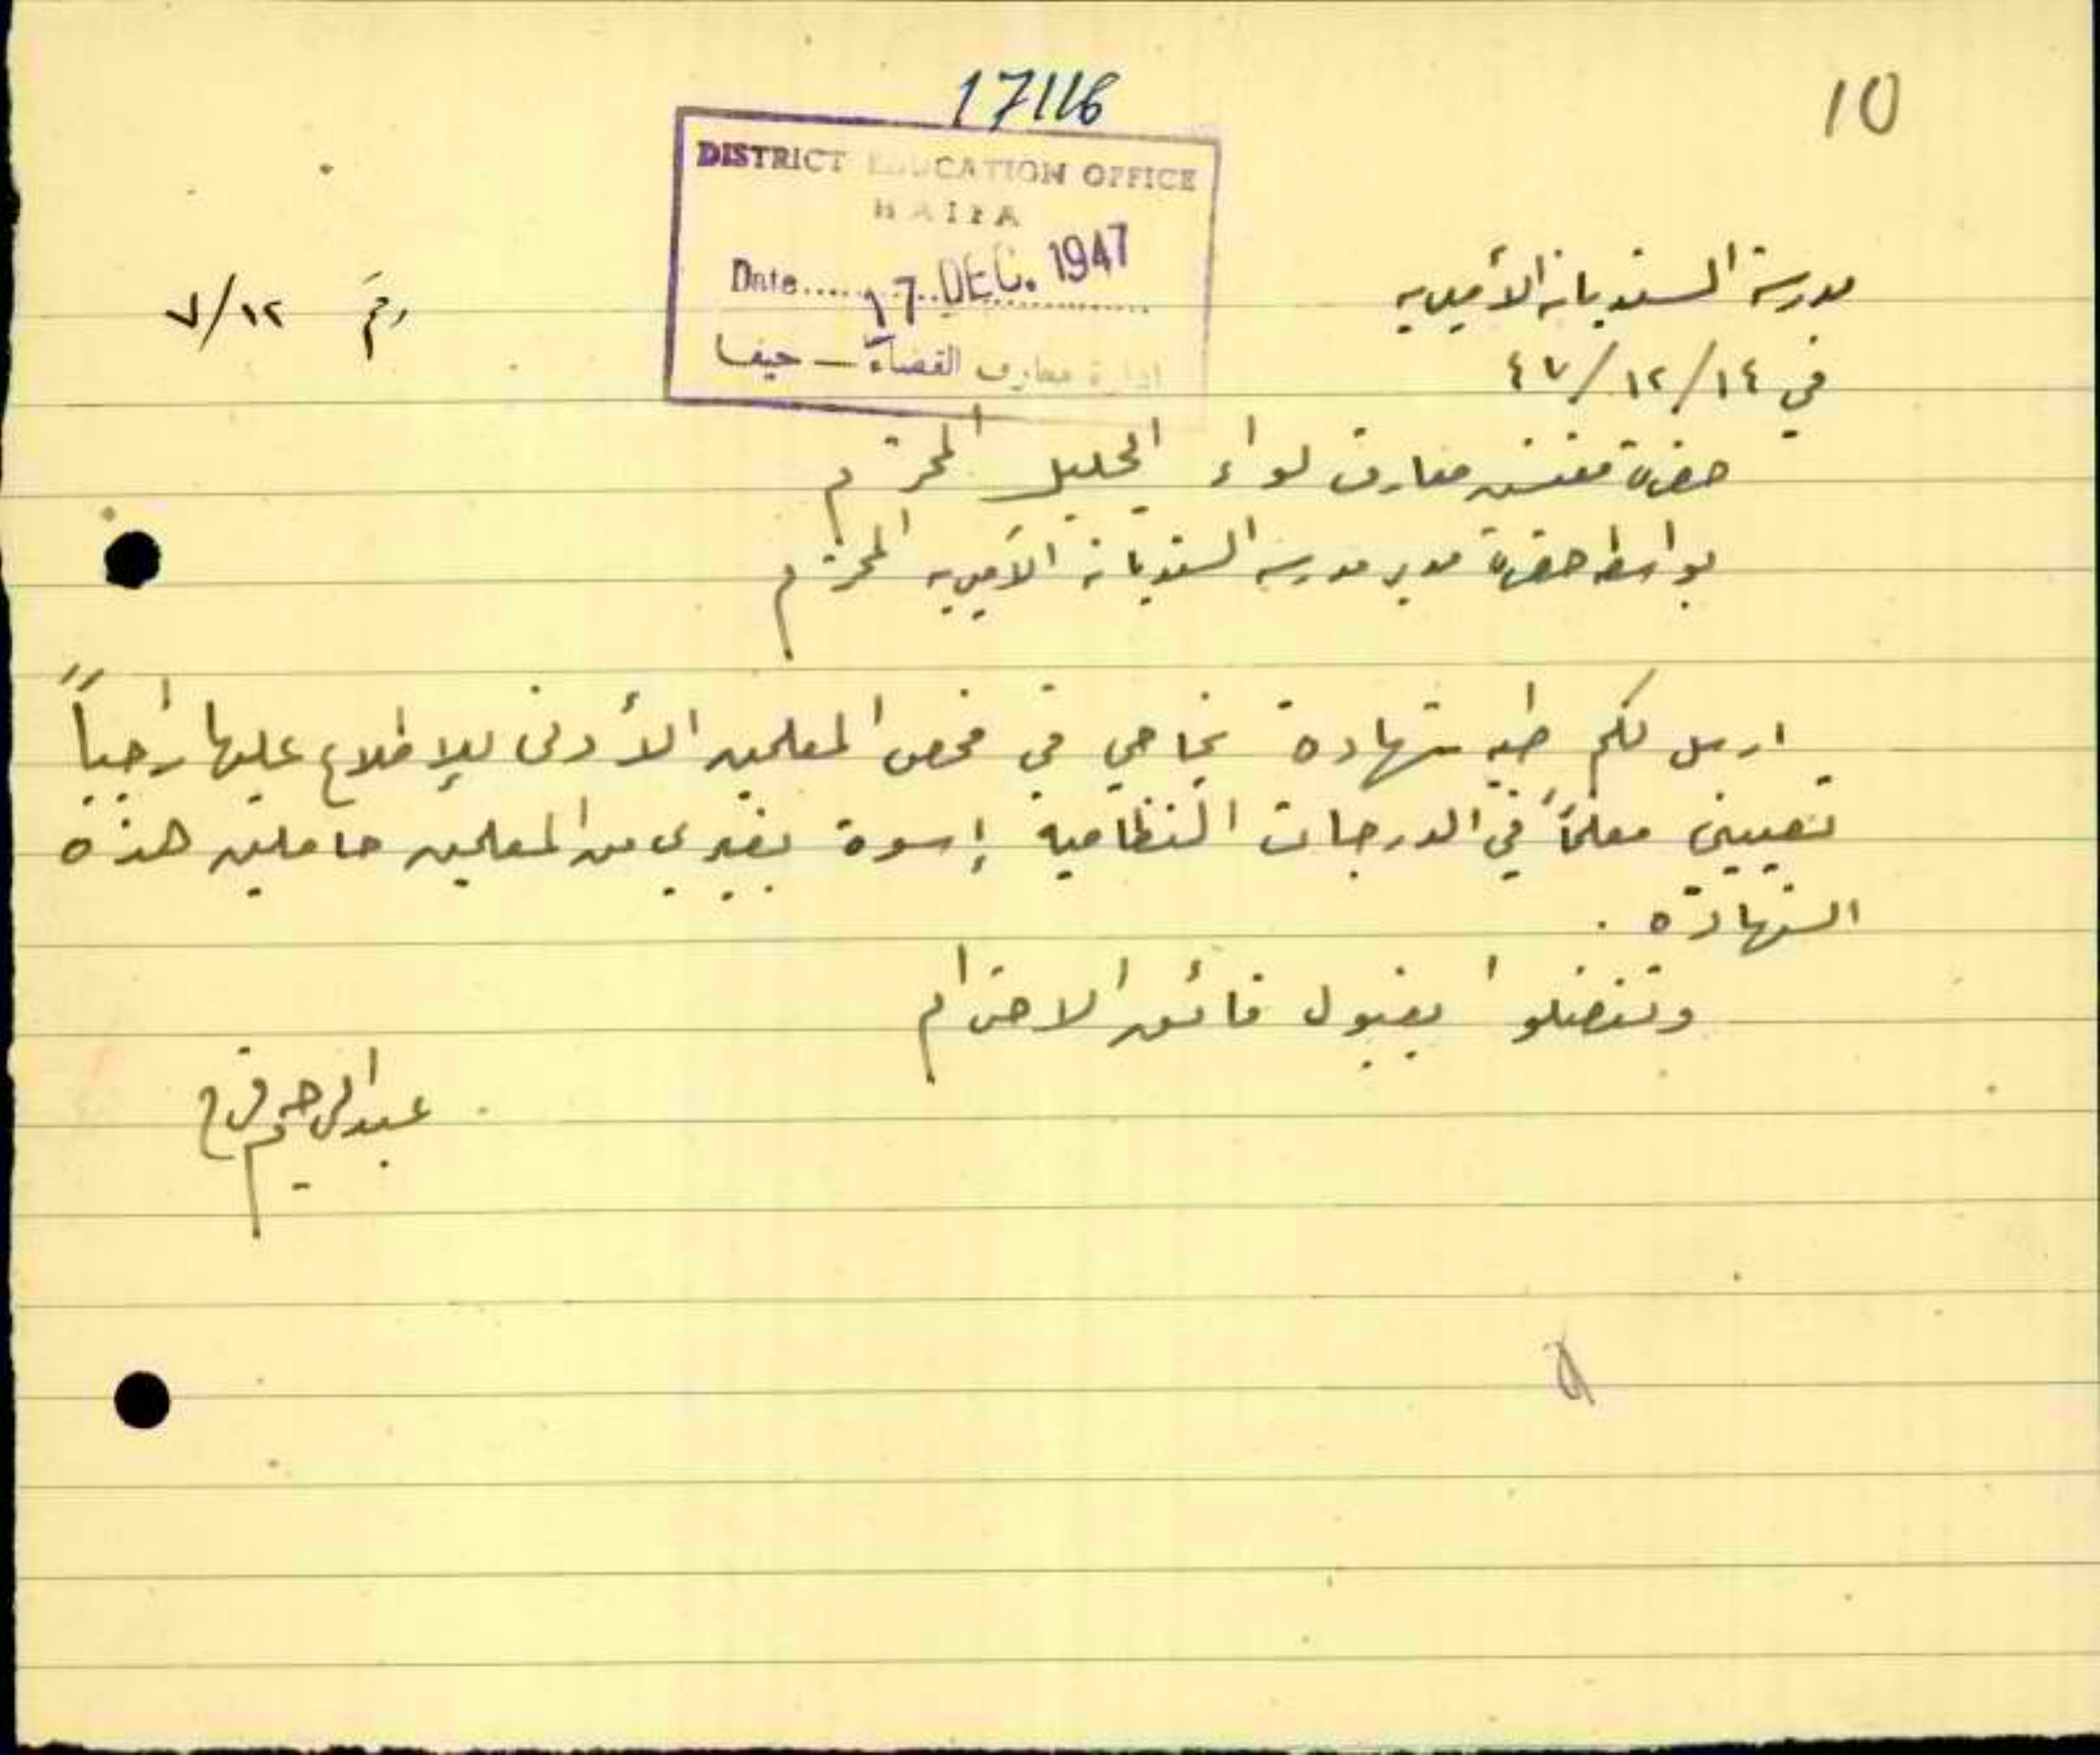 17116
10
DISTRICT EDUCATION OFFICE
HAIFA
Date 17 DEC. 1947
ادارة معارف القضاء — حيفا
مدرسة السنديانة الأميريه
رقم ٧/١٢
في ١٤/١٢/٤٧
حضرة مفتش معارف لواء الجليل المحترم
بواسطه حضرة مدير مدرسه السنديانة الأميريه المحترم
ارسل لكم طيه شهادة نجاحي في فحص المعلمين الأدنى للإطلاع عليها راجياً
تعييني معلماً في الدرجات النظامية إسوة بغيري من المعلمين حاملين هذه
الشهادة .
وتفضلوا بقبول فائق الاحترام
عبد الرحيم